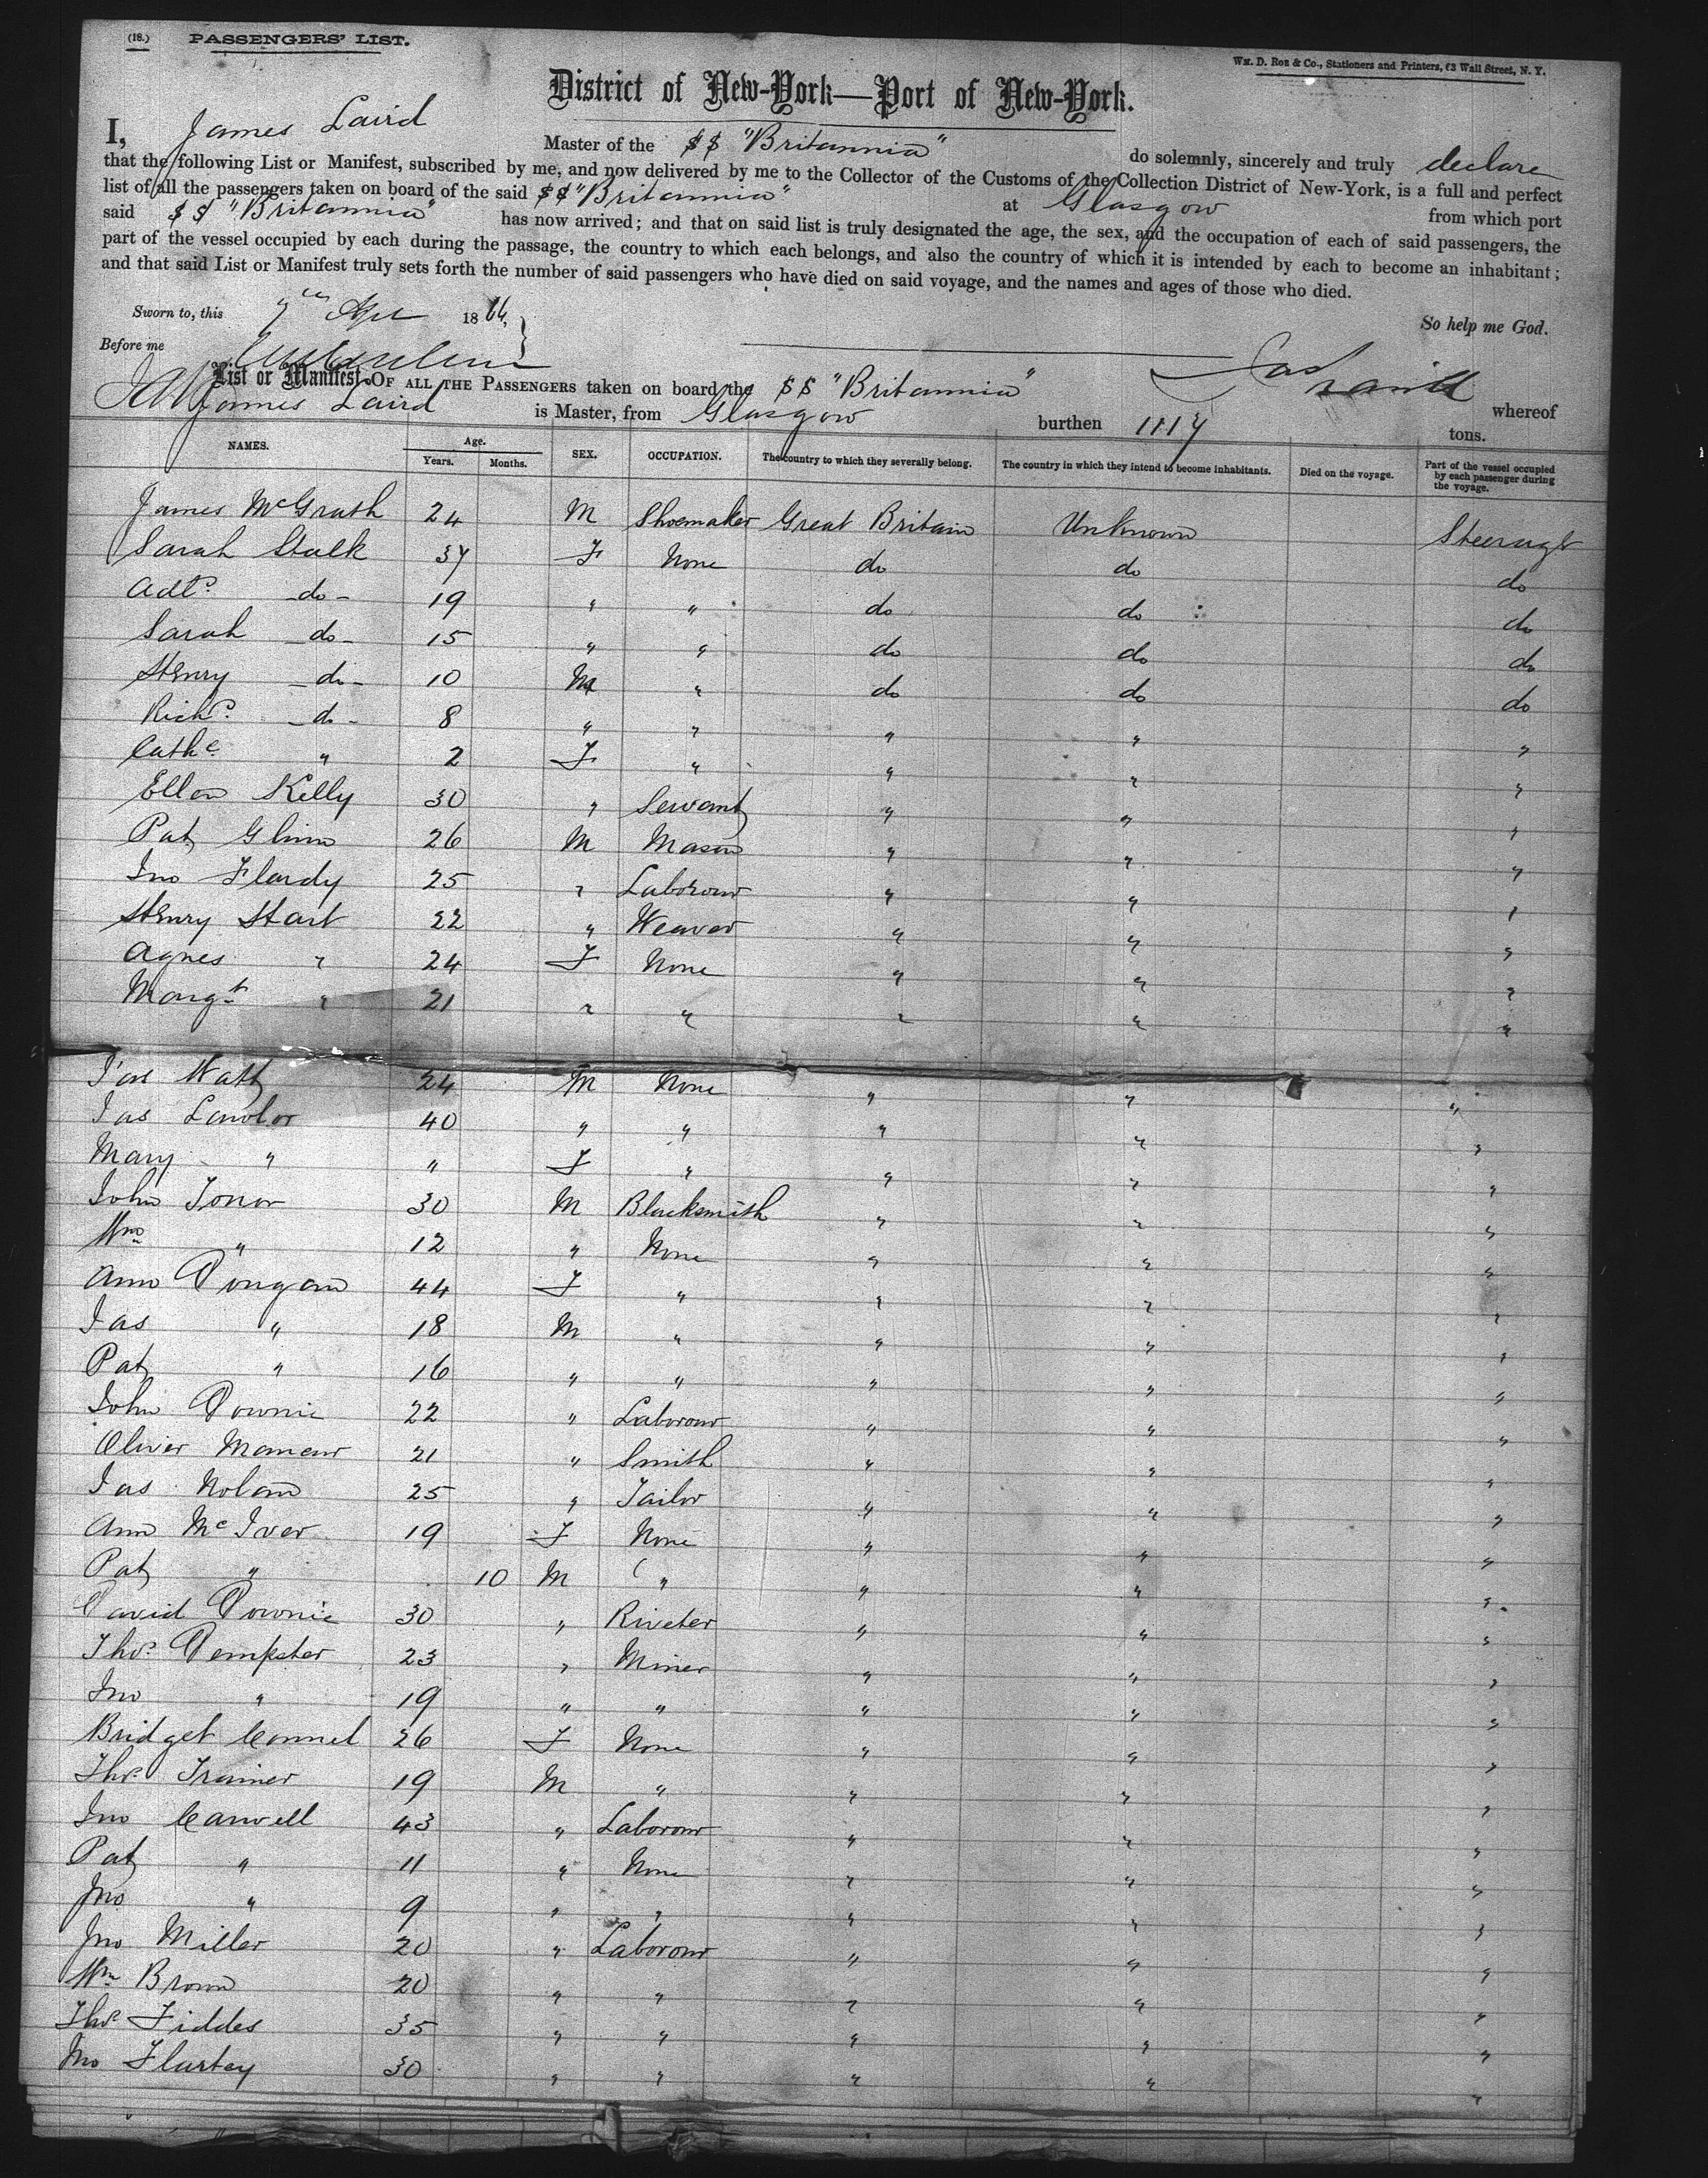 (18.) PASSENGERS' LIST.
Wm. D. Roe & Co., Stationers and Printers, 63 Wall Street, N. Y.
District of New-York—Port of New-York.
I, James Laird Master of the SS "Britannia" do solemnly, sincerely and truly declare
that the following List or Manifest, subscribed by me, and now delivered by me to the Collector of the Customs of the Collection District of New-York, is a full and perfect
list of all the passengers taken on board of the said SS "Britannia" at Glasgow from which port
said SS "Britannia" has now arrived; and that on said list is truly designated the age, the sex, and the occupation of each of said passengers, the
part of the vessel occupied by each during the passage, the country to which each belongs, and also the country of which it is intended by each to become an inhabitant;
and that said List or Manifest truly sets forth the number of said passengers who have died on said voyage, and the names and ages of those who died.
Sworn to, this 1866, So help me God.
Before me
List or Manifest OF ALL THE PASSENGERS taken on board the SS "Britannia" whereof
James Laird is Master, from Glasgow burthen tons.
NAMES. Age. Years. Months. SEX. OCCUPATION. The country to which they severally belong. The country in which they intend to become inhabitants. Died on the voyage. Part of the vessel occupied by each passenger during the voyage.
James McGrath 24 M Shoemaker Great Britain Unknown Steerage
Sarah Stalk 37 F None do do do
do 19 " " do do do
Sarah do 15 " " do do do
Henry do 10 M " do do do
Richd. do 8 " " " " "
Cathe " 2 F " " " "
Ellen Kelly 30 " Servant " " "
Pat Glinn 26 M Mason " " "
Jno 25 " Laborour " " "
Henry Hart 22 " Weaver " " "
Agnes " 24 F None " " "
Margt " 21 " " " " "
Jas Watt 24 M None " " "
Jas Lawlor 40 " " " " "
Mary " " F " " " "
John Tonor 30 M Blacksmith " " "
Wm " 12 " None " " "
Ann Dougan 44 F " " " "
Jas " 18 M " " " "
Pat " 16 " " " " "
John Downie 22 " Laborour " " "
Oliver 21 " Smith " " "
Jas Nolan 25 " Tailor " " "
Ann McIver 19 F None " " "
Pat " 10 M " " " "
David Downie 30 " Riveter " " "
Thos. Dempster 23 " Miner " " "
Jno " 19 " " " " "
Bridget Connel 26 F None " " "
Thos. Trainer 19 M " " " "
Jno Carvell 43 " Laborour " " "
Pat " 11 " None " " "
Jno " 9 " " " " "
Jno Miller 20 " Laborour " " "
Wm Brown 20 " " " " "
Thos. Fiddes 35 " " " " "
Jno 30 " " " " "